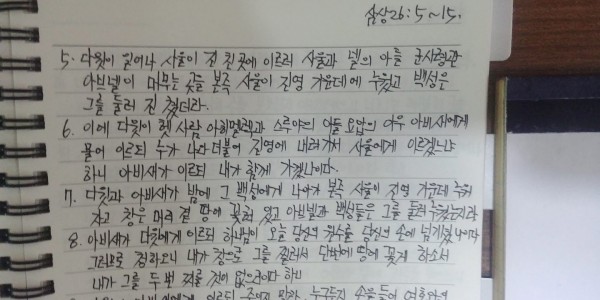 삼상26: 5~15.
5. 다윗이 일어나 사울이 진 친 곳에 이르러 사울과 넬의 아들 군사령관
아브넬이 머무는 곳을 본즉 사울이 진영 가운데에 누웠고 백성은
그를 둘러 진 쳤더라.
6. 이에 다윗이 헷 사람 아히멜렉과 스루야의 아들 요압의 아우 아비새에게
물어 이르되 누가 나와 더불어 진영에 내려가서 사울에게 이르겠느냐
하니 아비새가 이르되 내가 함께 가겠나이다.
7. 다윗과 아비새가 밤에 그 백성에게 나아가 본즉 사울이 진영 가운데 누워
자고 창은 머리 곁 땅에 꽂혀 있고 아브넬과 백성들은 그를 둘러 누웠는지라
8. 아비새가 다윗에게 이르되 하나님이 오늘 당신의 원수를 당신의 손에 넘기셨나이다
그러므로 청하오니 내가 창으로 그를 찔러서 단번에 땅에 꽂게 하소서
내가 그를 두 번 찌를 것이 없으리이다 하니
아비새에게 이르되 손을 들어